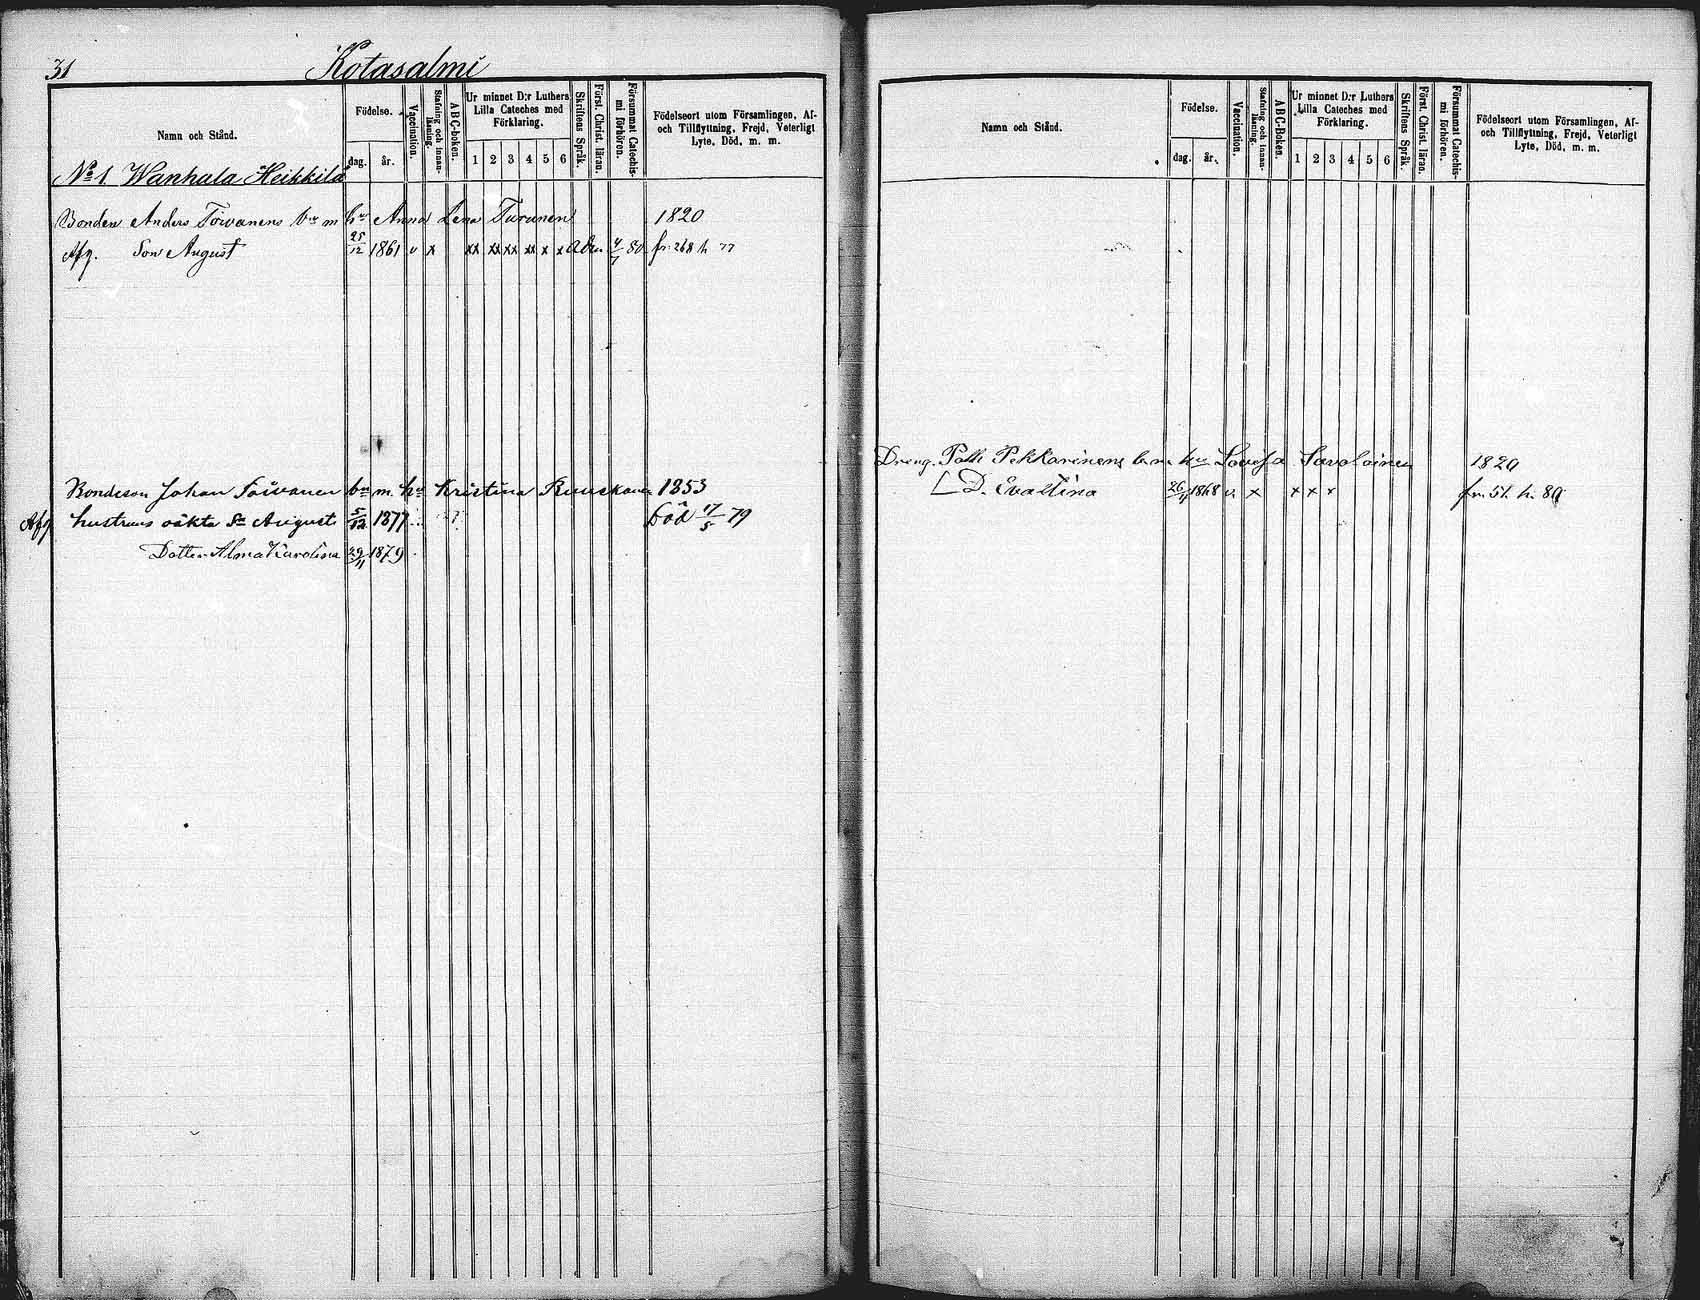 31 Kotasalmi
Namn och Stånd.
Födelse.
dag. år.
Vaccination.
Stafning och innan-läsning.
ABC-boken.
Ur minnet D:r Luthers Lilla Cateches med Förklaring.
1 2 3 4 5 6
Skriftens Språk.
Först. Christ. läran.
Försummat Catechis-mi förhören.
Födelseort utom Församlingen, Af- och Tillflyttning, Frejd, Veterligt Lyte, Död, m. m.
No 1. Wanhala Heikkilä
Bonden Anders Toivanens bn m hu Anna Lena Turunen 1820
Afg. Son August 25/12 1861 v x xx xx xx xx x x 80 fr. 268 h 77
Bondeson Johan Toivanen bn m. hu Kristina Ruuskanen 1853
Afg hustruns oäkta Sn August 5/12 1877 Död 17/5 79
Dotter Alma Karolina 29/11 1879
Namn och Stånd.
Födelse.
dag. år.
Vaccination.
Stafning och innan-läsning.
ABC-Boken.
Ur minnet D:r Luthers Lilla Cateches med Förklaring.
1 2 3 4 5 6
Skriftens Språk.
Först. Christ. läran.
Försummat Catechis-mi förhören.
Födelseort utom Församlingen, Af- och Tillflyttning, Frejd, Veterligt Lyte, Död, m. m.
Dreng. Pekkarinens bn m hu Lovisa Savolainen 1820
D. Eva Stina 26/11 1868 v. x x x x fr. 51 h. 80